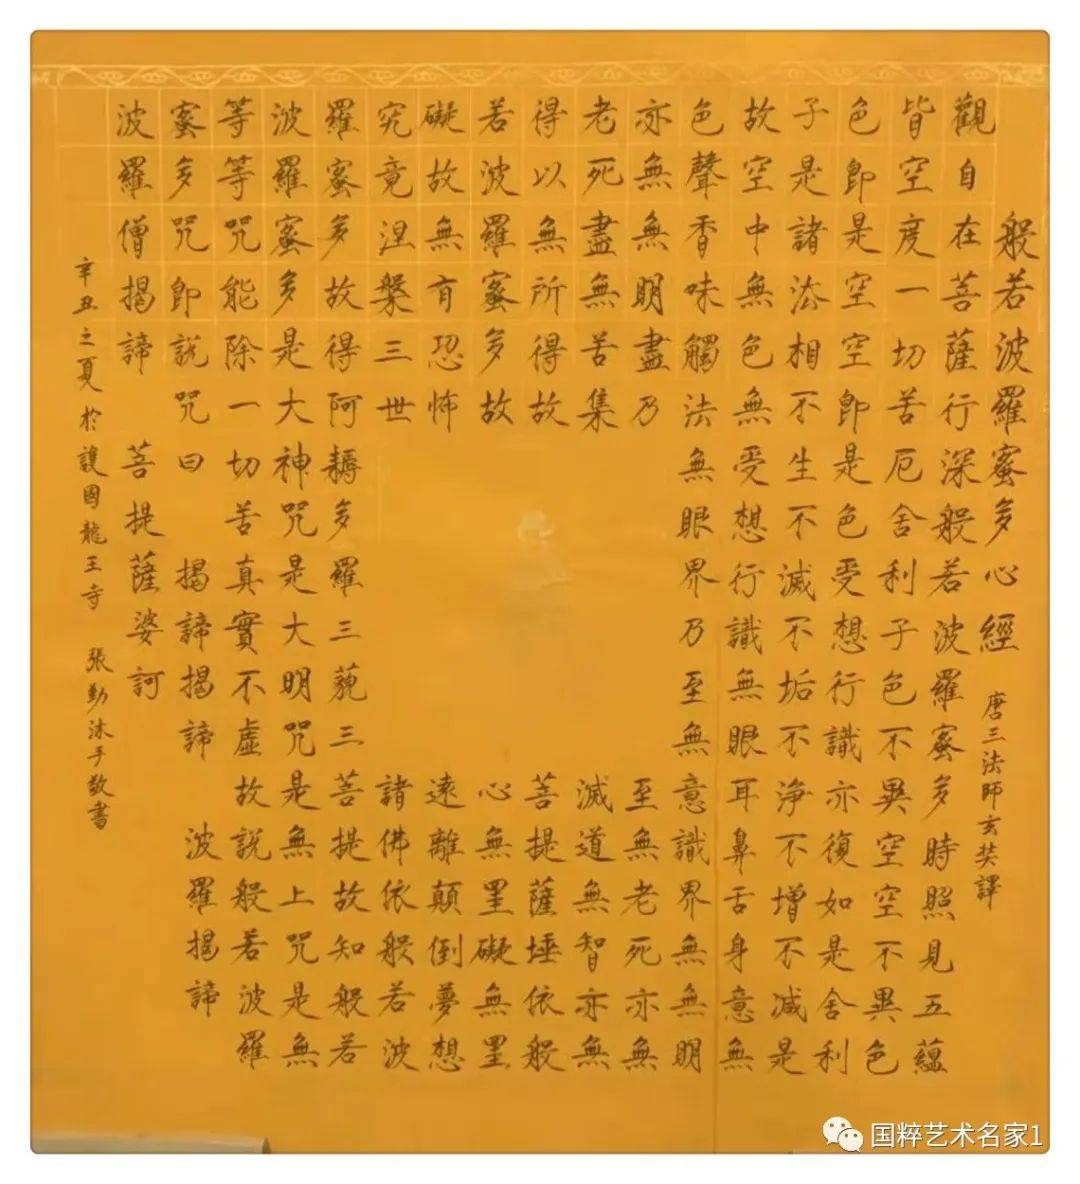 般若波羅蜜多心經
唐三法師玄奘譯
觀自在菩薩行深般若波羅蜜多時照見五蘊
皆空度一切苦厄舍利子色不異空空不異色
色即是空空即是色受想行識亦復如是舍利
子是諸法相不生不滅不垢不淨不增不減是
故空中無色無受想行識無眼耳鼻舌身意無
色聲香味觸法無眼界乃至無意識界無無明
亦無無明盡乃至無老死亦無
老死盡無苦集滅道無智亦無
得以無所得故菩提薩埵依般
若波羅蜜多故心無罣礙無罣
礙故無有恐怖遠離顛倒夢想
究竟涅槃三世諸佛依般若波
羅蜜多故得阿耨多羅三藐三菩提故知般若
波羅蜜多是大神咒是大明咒是無上咒是無
等等咒能除一切苦真實不虛故說般若波羅
蜜多咒即說咒曰 揭諦揭諦 波羅揭諦
波羅僧揭諦 菩提薩婆訶
辛丑之夏於護國龍王寺 張勤沐手敬書
国粹艺术名家1